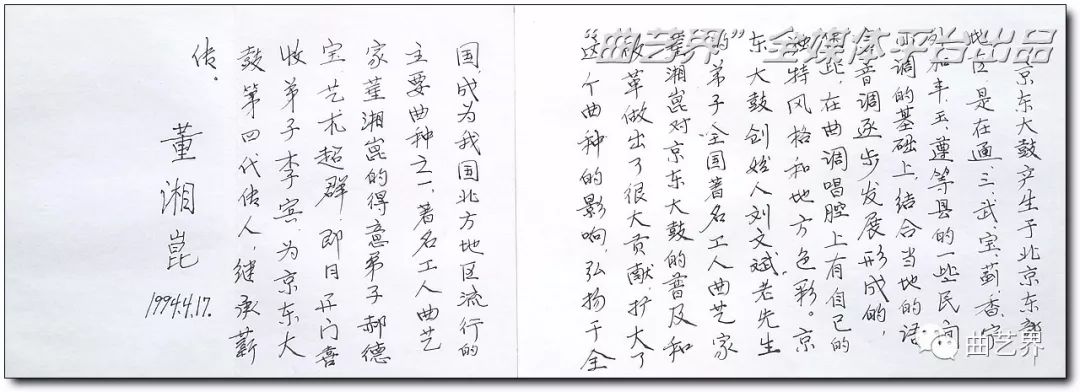 京东大鼓产生于北京东部
地区,是在通、三、武、宝、蓟、香、宁
外加丰、玉、遵等县的一些民间
小调的基础上,结合当地的语
言音调逐步发展形成的,
因此,在曲调唱腔上有自己的
独特风格和地方色彩。京
东大鼓创始人刘文斌老先生
的弟子、全国著名工人曲艺家
董湘崑对京东大鼓的普及和
改革做出了很大贡献,扩大了
这个曲种的影响,弘扬于全
国,成为我国北方地区流行的
主要曲种之一,著名工人曲艺
家董湘崑的得意弟子郝德
宝,艺术超群,即日开门喜
收弟子李宾,为京东大
鼓第四代传人,继承薪
传。
董湘崑
1994.4.17.
“曲艺界”全媒体平台出品
曲艺界